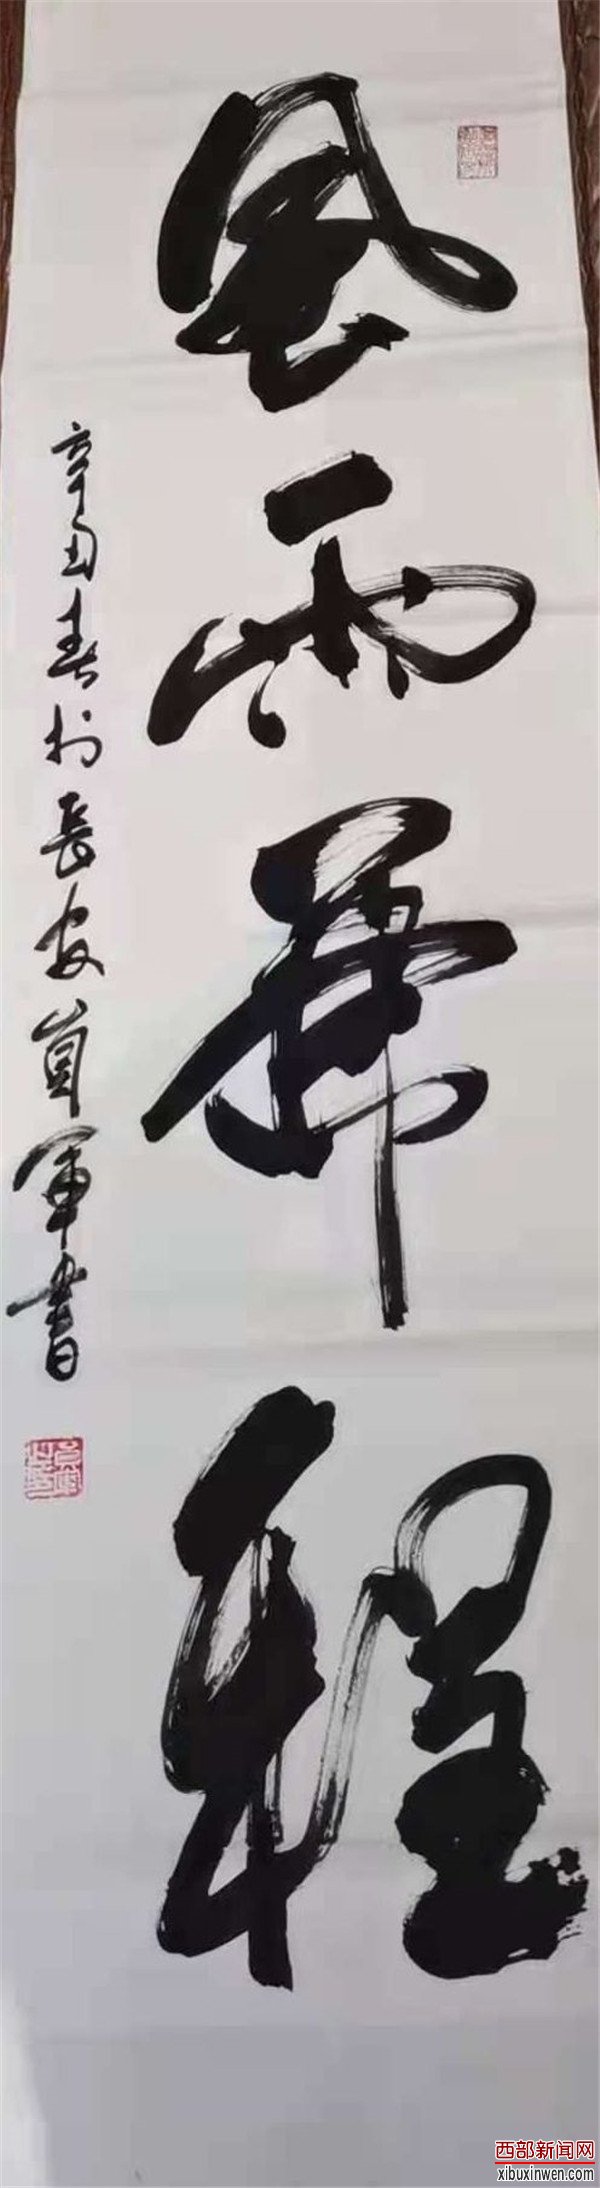 风雨兼程
辛丑春于长安负军书
西部新闻网
xibuxinwen.com